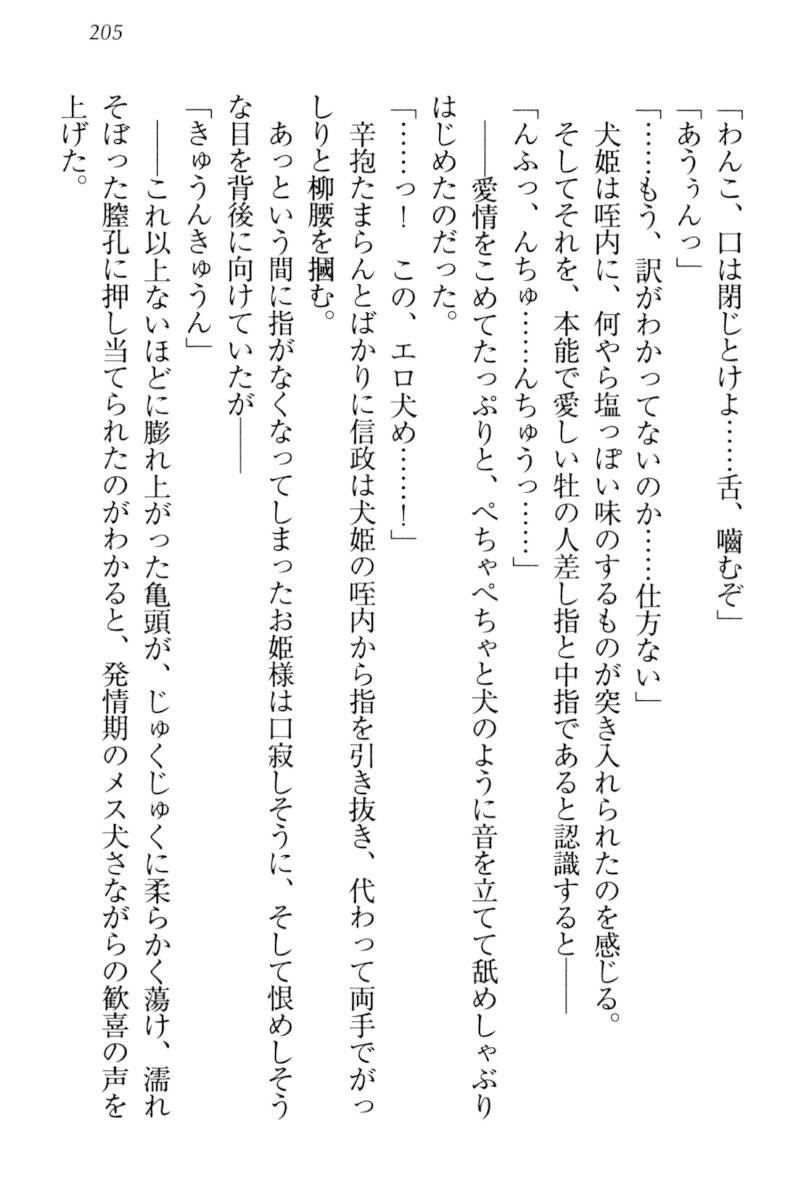 205
「わんこ、口は閉じとけよ……舌、嚙むぞ」
「あうぅんっ」
「……もう、訳がわかってないのか……仕方ない」
犬姫は咥内に、何やら塩っぽい味のするものが突き入れられたのを感じる。
そしてそれを、本能で愛しい牡の人差し指と中指であると認識すると――
「んふっ、んちゅ……んちゅうっ……」
――愛情をこめてたっぷりと、ぺちゃぺちゃと犬のように音を立てて舐めしゃぶり
はじめたのだった。
「……っ！　この、エロ犬め……！」
辛抱たまらんとばかりに信政は犬姫の咥内から指を引き抜き、代わって両手でがっ
しりと柳腰を摑む。
あっという間に指がなくなってしまったお姫様は口寂しそうに、そして恨めしそう
な目を背後に向けていたが――
「きゅうんきゅうん」
――これ以上ないほどに膨れ上がった亀頭が、じゅくじゅくに柔らかく蕩け、濡れ
そぼった膣孔に押し当てられたのがわかると、発情期のメス犬さながらの歓喜の声を
上げた。